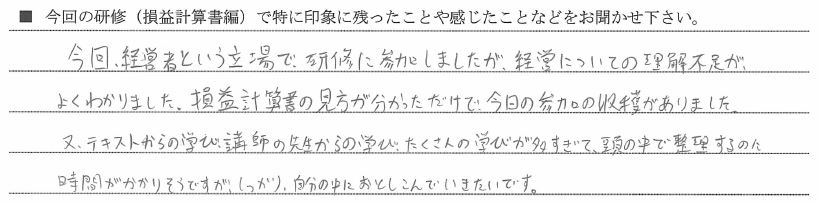 ■ 今回の研修（損益計算書編）で特に印象に残ったことや感じたことなどをお聞かせ下さい。
今回、経営者という立場で、研修に参加しましたが、経営についての理解不足が、
よくわかりました。損益計算書の見方が分かっただけで、今日の参加の収穫がありました。
又、テキストからの学び、講師の先生からの学び、たくさんの学びが多すぎて、頭の中で整理するのに
時間がかかりそうですが、しっかり、自分の中におとしこんでいきたいです。